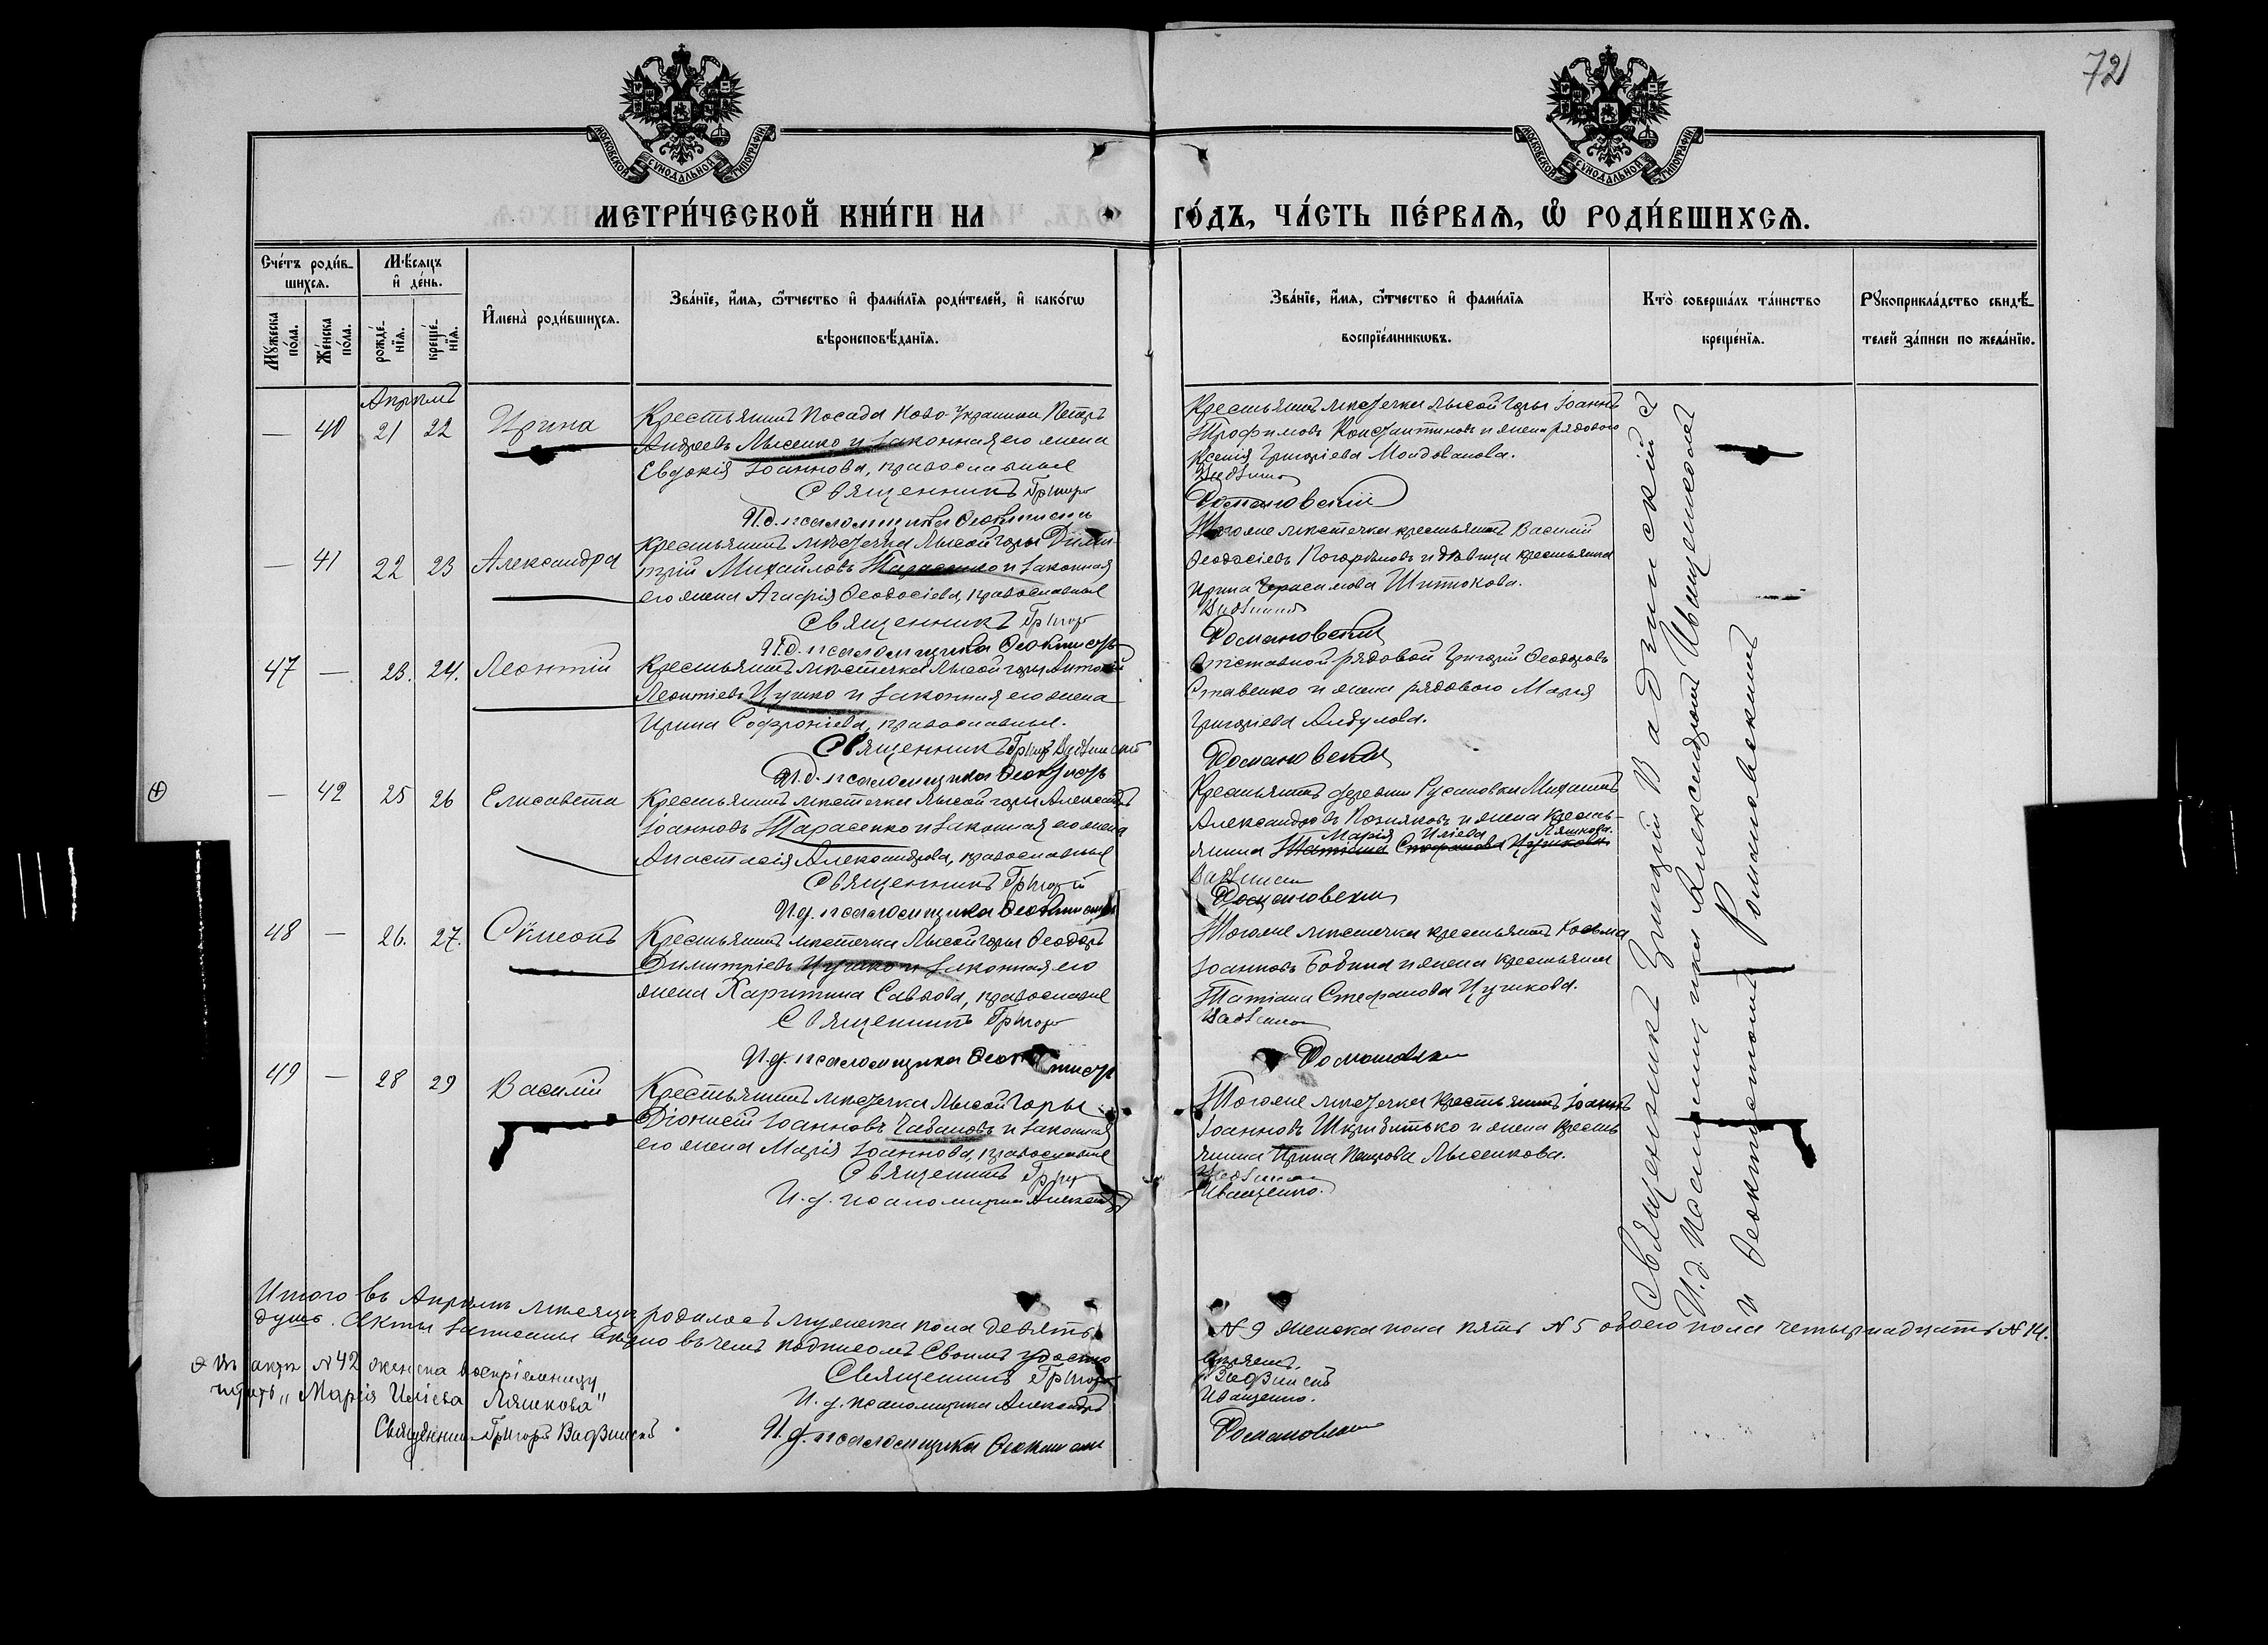 72
МОСКОВСКОЙ СѴНОДАЛЬНОЙ ТИПОГРАФІИ
МОСКОВСКОЙ СѴНОДАЛЬНОЙ ТИПОГРАФІИ
МЕТРИ́ЧЕСКОЙ КНИ́ГИ НА
ГО́ДЪ, ЧА́СТЬ ПЕ́РВАѦ, Ѡ҆ РОДИ́ВШИХСѦ.
Сче́тъ роди́в-
шихсѧ.
Мꙋ́жеска по́ла.
Же́нска по́ла.
Мѣ́сѧцъ
и҆ де́нь.
рожде́-
нїѧ.
креще́-
нїѧ.
И҆мена̀ роди́вшихсѧ.
Зва́нїе, и҆́мѧ, ѻ҆́тчество и҆ фами́лїѧ роди́телей, и҆ како́гѡ
вѣроисповѣ́данїѧ.
Зва́нїе, и҆́мѧ, ѻ҆́тчество и҆ фами́лїѧ
воспрїе́мникѡвъ.
Кто̀ соверша́лъ та́инство
креще́нїѧ.
Рꙋкоприкла́дство свидѣ́-
телей за́писи по жела́нїю.
Апрѣль
— 40 21 22 Ирина
Крестьянинъ посада Ново-Украинки Петръ
Андреевъ Лысенко и законная его жена
Евдокія Іоаннова, православные
Священникъ Григорій
И.д. псаломщика Ѳеоктистъ
Крестьянинъ мѣстечка Лысой Горы Іоаннъ
Трофимовъ Константиновъ и жена рядового
Ксенія Григоріева Молдованова.
Вадзинскій
Романовскій
— 41 22 23 Александра
Крестьянинъ мѣстечка Лысой Горы Дими-
трій Михайловъ Тарасенко и законная
его жена Агафія Ѳеодосіева, православные
Священникъ Григорій
И.д. псаломщика Ѳеоктистъ
Тогоже мѣстечка крестьянинъ Василій
Ѳеодосіевъ Погорѣловъ и дѣвица крестьянка
Ирина Герасимова Шитикова.
Вадзинскій
Романовскій
47 — 23. 24. Леонтій
Крестьянинъ мѣстечка Лысой Горы Антоній
Леонтіевъ Цушко и законная его жена
Ирина Софроніева, православные.
Священникъ Григорій Вадзинскій
И.д. псаломщика Ѳеоктистъ
Отставной рядовой Григорій Ѳеодоровъ
Ставенко и жена рядового Марія
Григоріева
Романовскій
— 42 25 26 Елисавета
Крестьянинъ мѣстечка Лысой Горы Александръ
Іоанновъ Тарасенко и законная его жена
Анастасія Александрова, православные
Священникъ Григорій
И.д. псаломщика Ѳеоктистъ
Крестьянинъ деревни Русановки Михаилъ
Александровъ Позняковъ и жена кресть-
Марія Иліева Ляшкова.
янина Татіана Стефанова Цушкова
Вадзинскій
Романовскій
48 — 26. 27. Сѵмеонъ
Крестьянинъ мѣстечка Лысой Горы Ѳеодоръ
Димитріевъ Цушко и законная его
жена Харитина Саввова, православные
Священникъ Григорій
И.д. псаломщика Ѳеоктистъ
Тогоже мѣстечка крестьянинъ Косьма
Іоанновъ Бабина и жена крестьянина
Татіана Стефанова Цушкова.
Вадзинскій
Романовскій
49 — 28 29 Василій
Крестьянинъ мѣстечка Лысой Горы
Діонисій Іоанновъ Чабановъ и законная
его жена Марія Іоаннова, православные
Священникъ Григорій
И.д. псаломщика Александръ
Тогоже мѣстечка крестьянинъ Іоаннъ
Іоанновъ и жена кресть-
янина Ирина Петрова Лысенкова.
Вадзинскій
Иващенко.
Священникъ Григорій Вадзинскій съ
И.д. псаломщика Александромъ Иващенкомъ
и Ѳеоктистомъ Романовскимъ
Итого въ Апрѣлѣ мѣсяцѣ родилось мужеска пола девять
№ 9 женска пола пять № 5 обоего пола четырнадцать № 14.
душъ. Акты записаны вѣрно въ чемъ подписомъ своимъ удосто-
вѣряемъ.
Священникъ Григорій
Вадзинскій
И.д. псаломщика Александръ
Иващенко.
И.д. псаломщика Ѳеоктистъ
Романовскій
Въ актѣ № 42 женска воспріемницу
читать „Марія Иліева Ляшкова"
Священникъ Григорій Вадзинскій